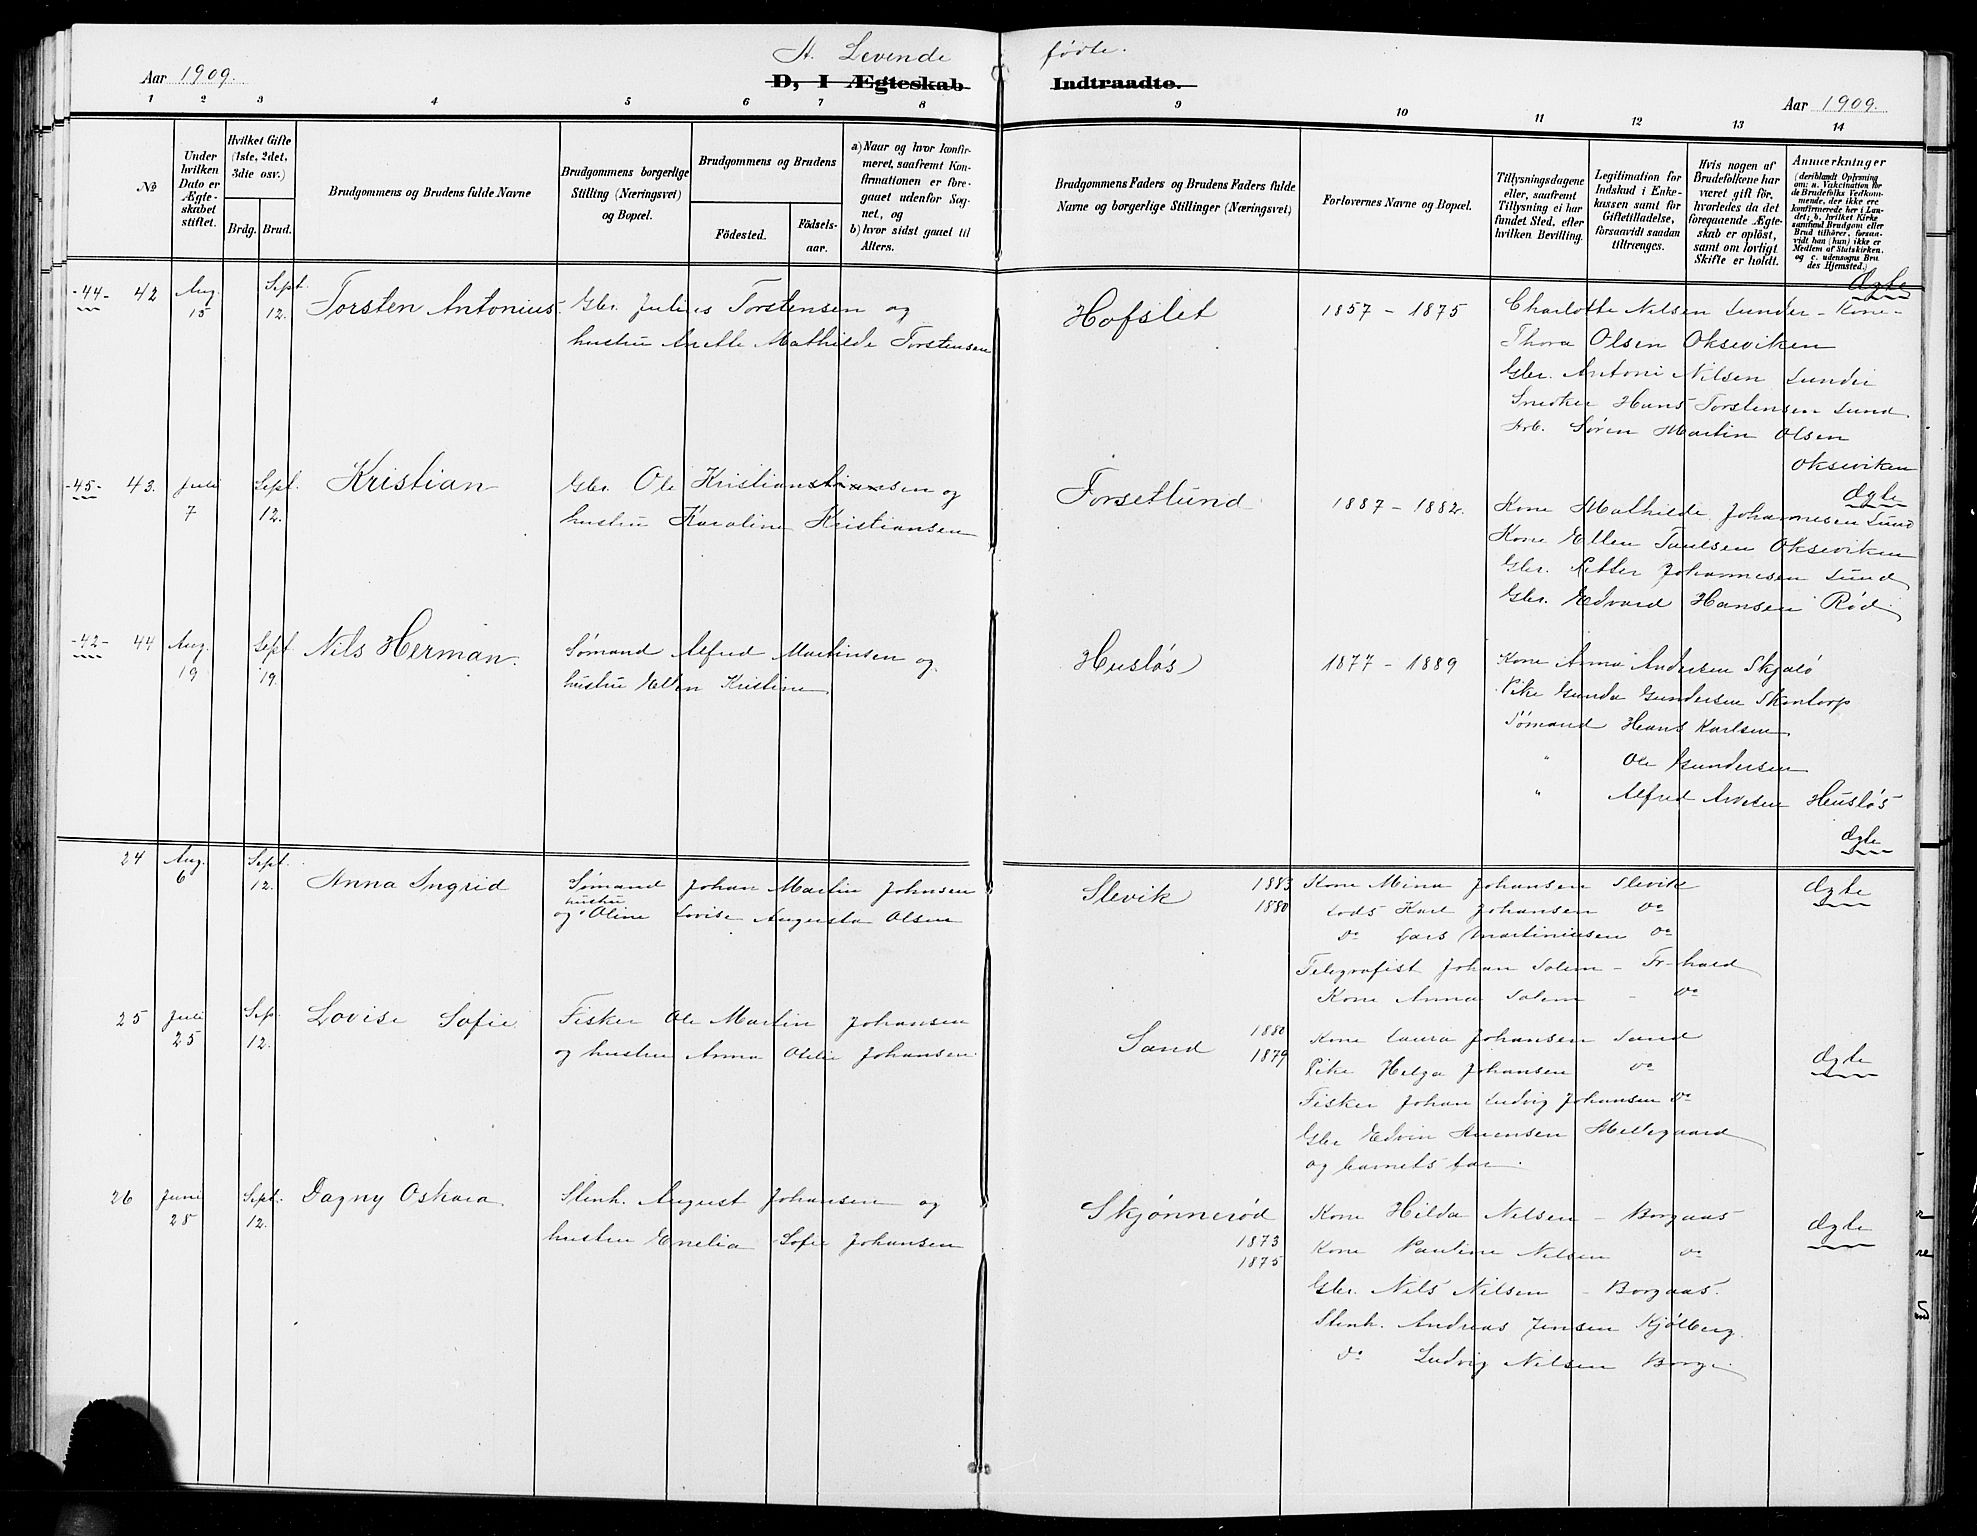 A. Levende fødte.
Aar 1909. D, I Ægteskab Indtraadte. Aar 1909.
1 2 3 4 5 6 7 8 9 10 11 12 13 14
No
Under hvilken Dato er Ægteskabet stiftet.
Hvilket Gifte (1ste, 2det, 3die osv.)
Brdg. Brud.
Brudgommens og Brudens fulde Navne
Brudgommens borgerlige Stilling (Næringsvei) og Bopæl.
Brudgommens og Brudens
Fødested. Fødselsaar.
a) Naar og hvor konfirmeret, saafremt Konfirmationen er foregaaet udenfor Sognet, og
b) hvor sidst gaaet til Alters.
Brudgommens Faders og Brudens Faders fulde Navne og borgerlige Stillinger (Næringsvei)
Forlovernes Navne og Bopæl.
Tillysningsdagene eller, saafremt Tillysning ei har fundet Sted, efter hvilken Bevilling.
Legitimation for Indskud i Enkekassen samt for Giftetilladelse, forsaavidt saadan tiltrænges.
Hvis nogen af Brudefolkene har været gift før, hvorledes da det foregaaende Ægteskab er opløst, samt om lovligt Skifte er holdt.
Anmærkninger (deriblandt Oplysning om: a. Vakcination for de Brudefolks Vedkommende, der ikke ere konfirmerede her i Landet; b. hvilket Kirkesamfund Brudgom eller Brud tilhører, forsaavidt han (hun) ikke er Medlem af Statskirken, og c. udensogns Brudes Hjemsted.)
-44- 42 Aug. 15 Sept. 12. Torsten Antonius. Gbr. Julius Torstensen og
hustru Anette Mathilde Torstensen
Hofslet 1857 - 1875 Charlotte Nilsen Lunder - Kone - Ægte
Thora Olsen Okseviken
Gbr. Antoni Nilsen Lunde
Snedker Hans Torstensen Lund
Arb. Søren Martin Olsen
Okseviken
-45- 43. Juli 7 Sept. 12. Kristian Gbr. Ole Kristianstiansen og
hustru Karoline Kristiansen
Torsetlund 1887 - 1882. Kone Mathilde Johannesen Lund Ægte
Kone Ellen Paulsen Okseviken
Gbr. Petter Johannesen Lund
Gbr. Edvard Hansen Rød.
-42- 44 Aug. 19 Sept 19. Nils Herman. Sømand Alfred Martinsen og
hustru Ellen Kristine
Husløs 1877 - 1889 Kone Anna Andersen Skjælø
Pike Gunda Gundersen Skontorp
Sømand Hans Karlsen
" Ole Gundersen
" Alfred Husløs
Ægte
24 Aug. 6 Sept. 12. Anna Ingrid Sømand Johan Martin Johnsen
og hustru Oline Lovise Augusta Olsen
Slevik 1883 1880 Kone Mina Johansen Slevik Ægte
Lods Karl Johansen do
do Lars Martiniusen do
Telegrafist Johan Solem - Fr-hald
Kone Anna Solem - do
25 Juli 25 Sep. 12. Lovise Sofie Fisker Ole Martin Johansen
og hustru Anna Otelie Johansen.
Sand 1880 1879 Kone Laura Johansen Sand Ægte
Pike Helga Johansen do
Fisker Johan Ludvig Johansen do
Gbr Edvin Svensen Mellegaard
og barnets far.
26 Juni 25 Sept. 12. Dagny Oskara Stenh. August Johansen og
hustru Enelia Sofie Johansen
Skjønnerød 1873 1875 Kone Hilda Nilsen - Borgaas Ægte
Kone Pauline Nilsen do
Gbr. Nils Nilsen - Borgaas.
Stenh. Andreas Jensen Kjølberg.
do Ludvig Nilsen Borge.